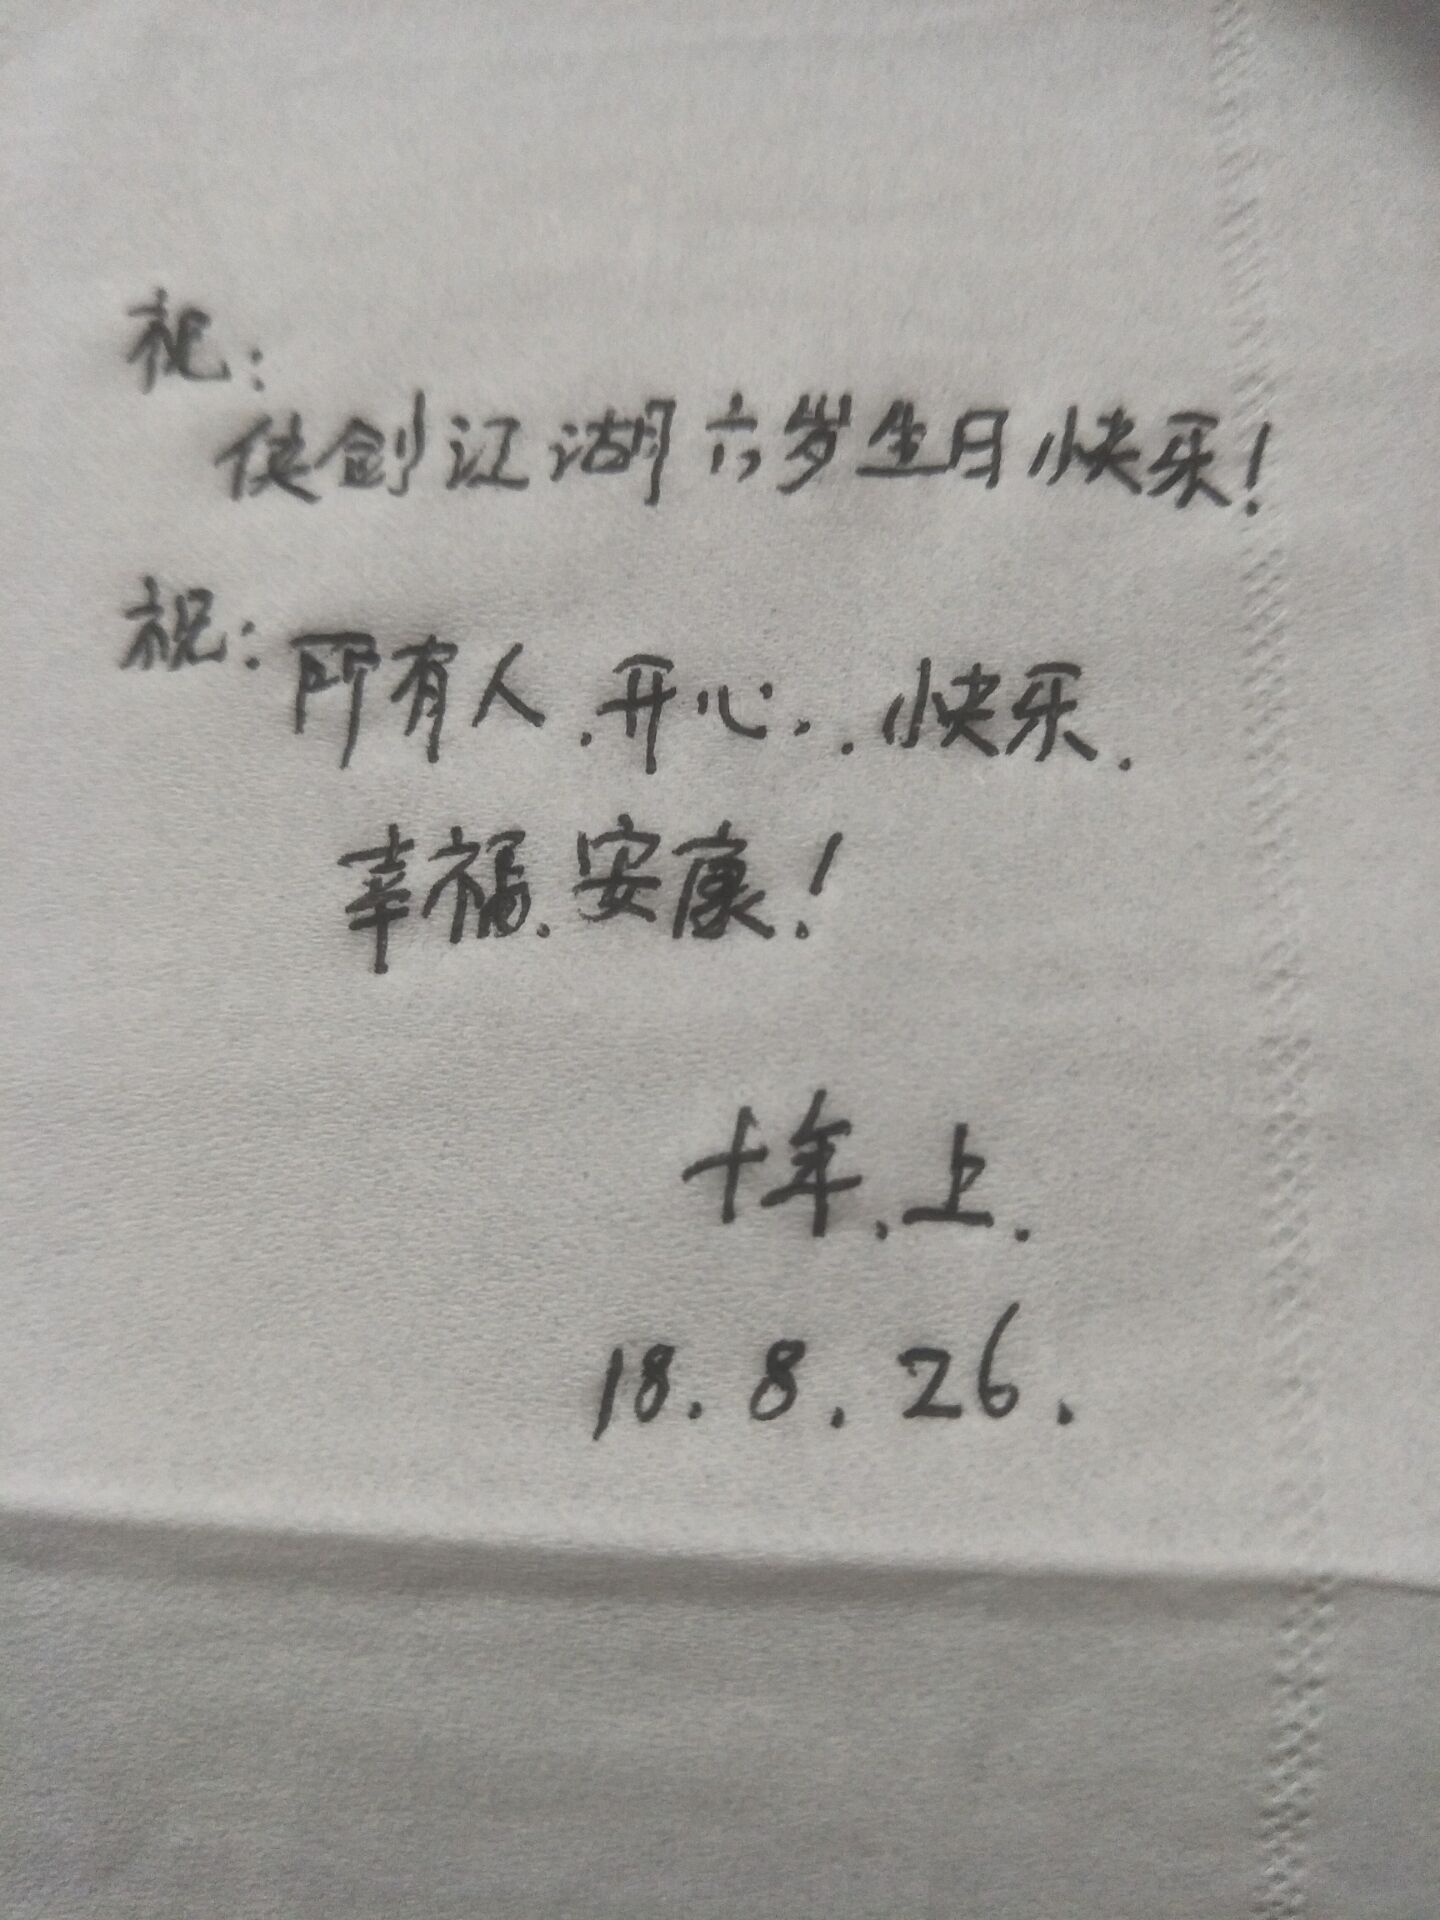 祝:
侠剑江湖六岁生日快乐!
祝:所有人.开心..快乐.
幸福.安康!
十年.上.
18.8.26.